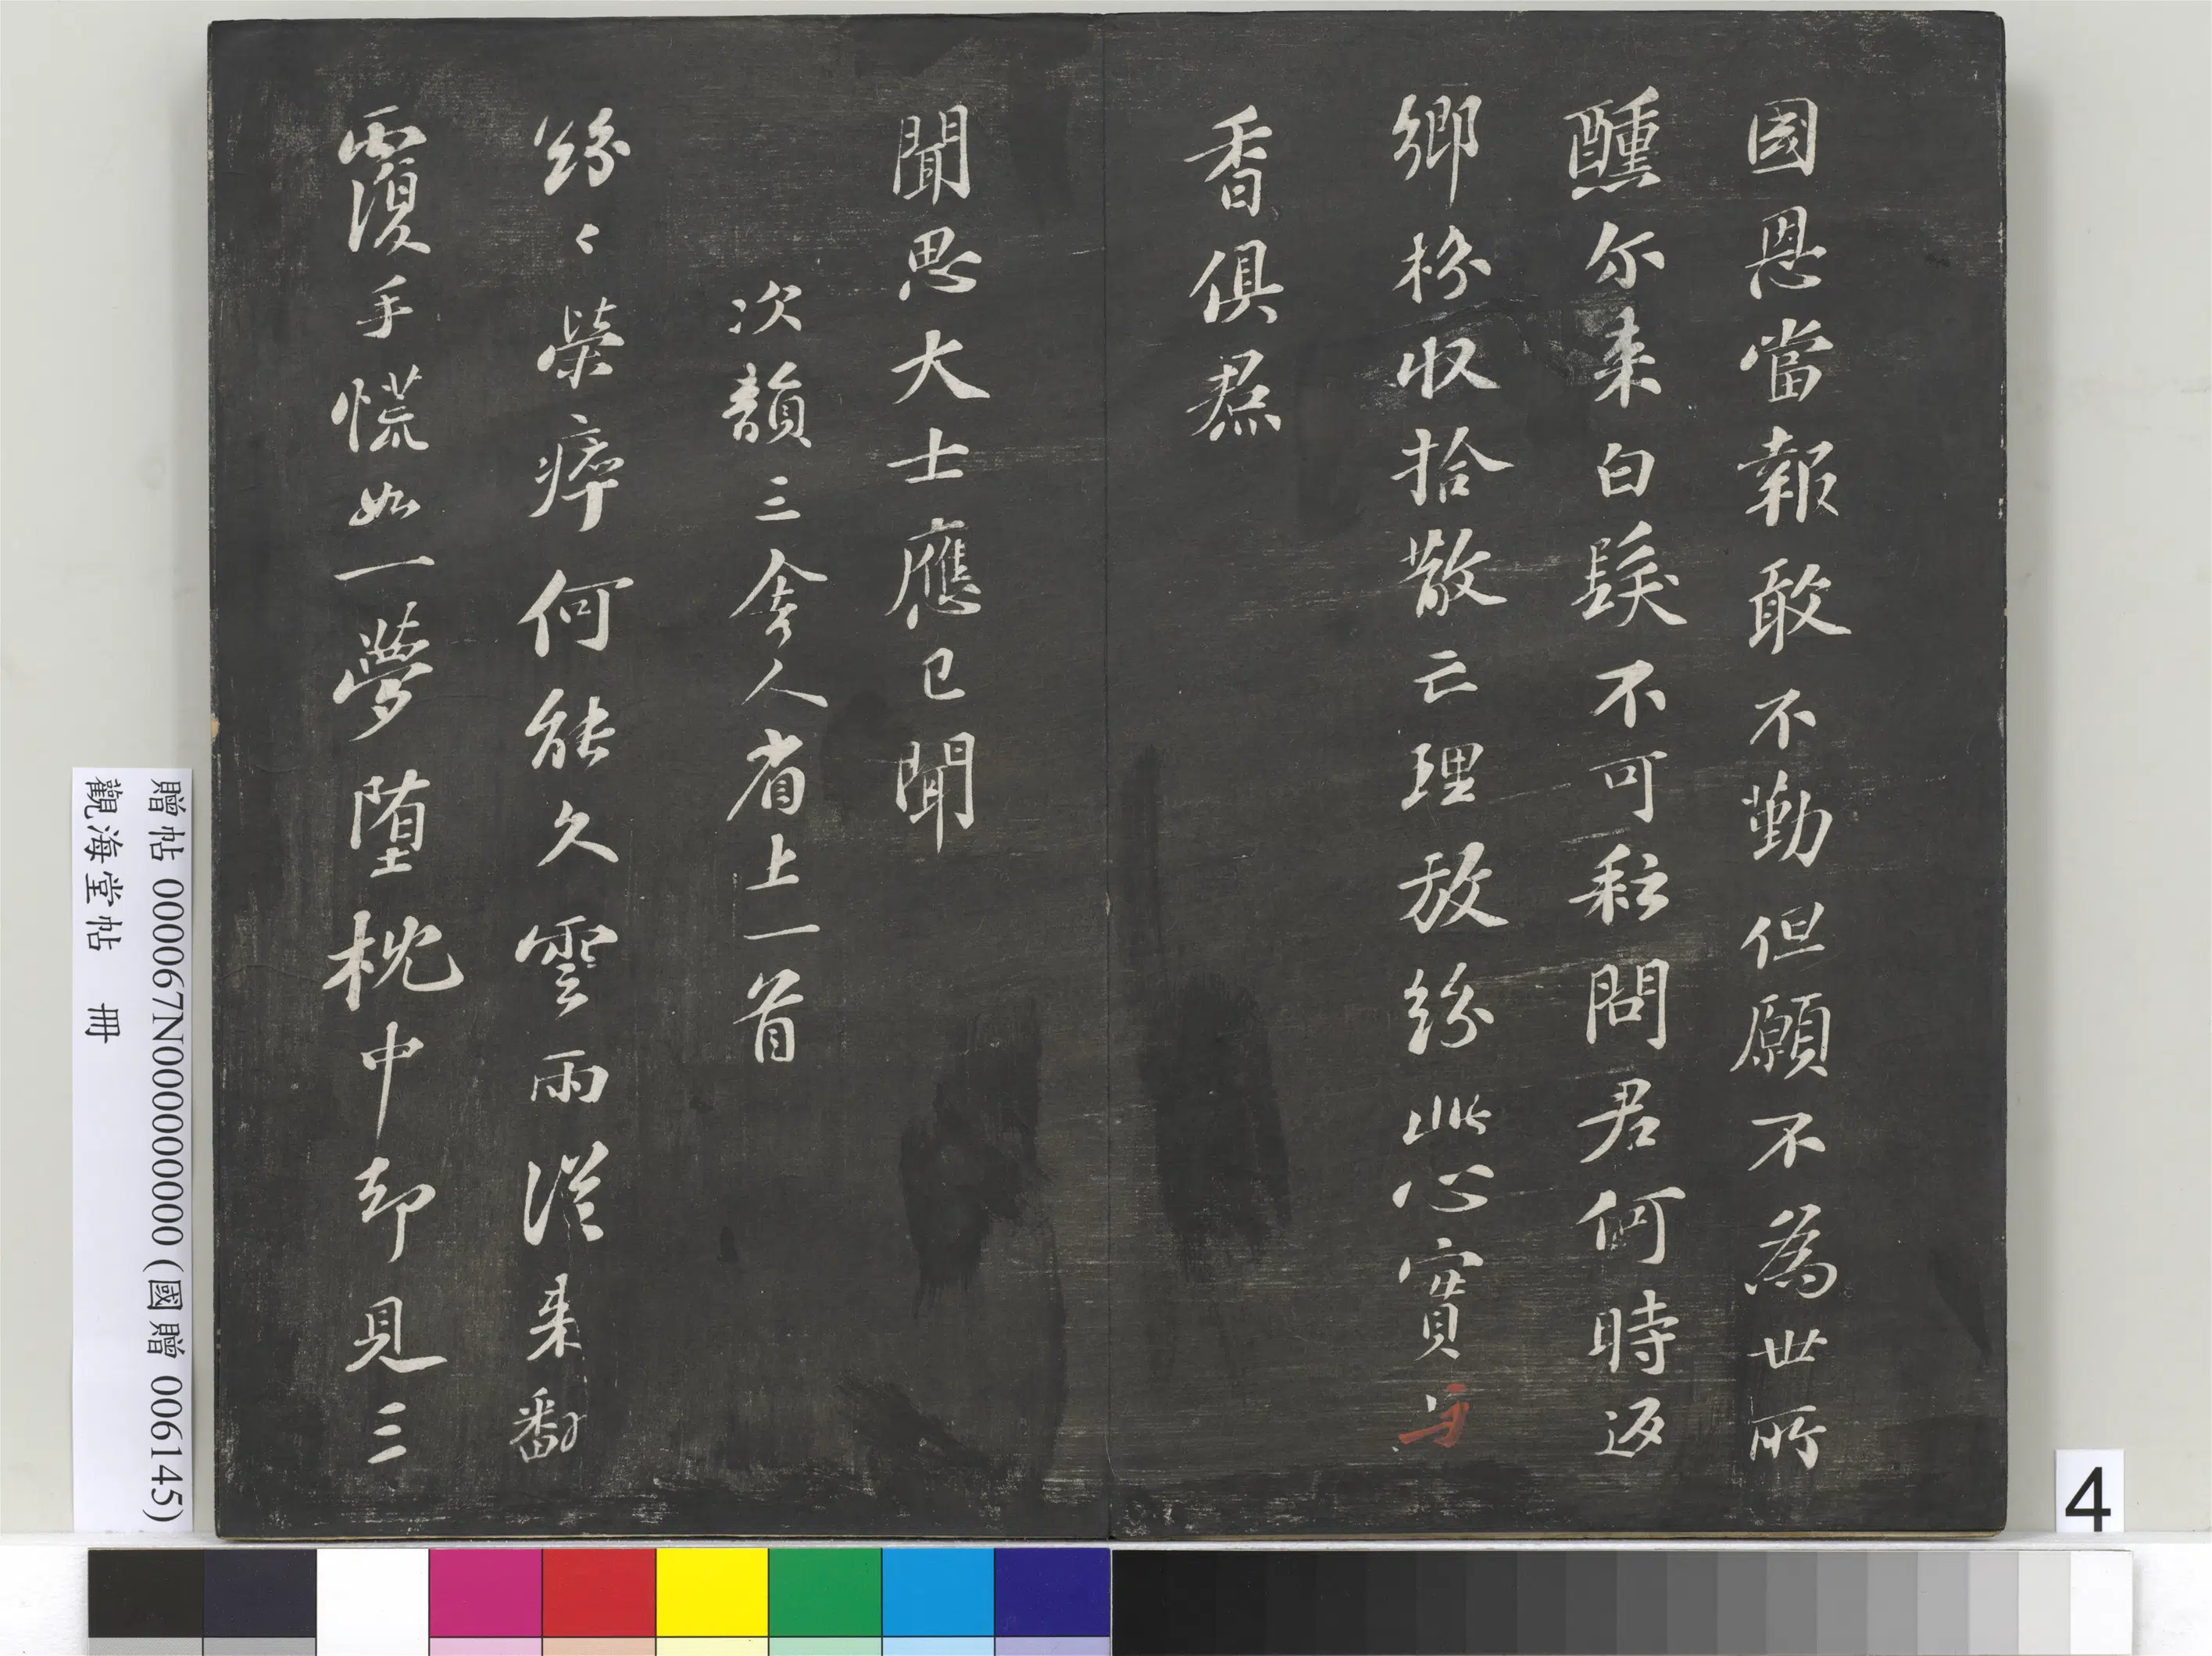 國恩當報敢不勤但願不為世所
醺尔来白髮不可耘問君何時返
鄉枌收拾散亡理放紛此心實与
香俱焄
聞思大士應已聞
次韻三舍人省上一首
紛〻榮瘁何能久雲雨從来翻
覆手慌如一夢堕枕中却見三
贈帖 000067N000000000 (國贈 006145)
觀海堂帖 冊
4